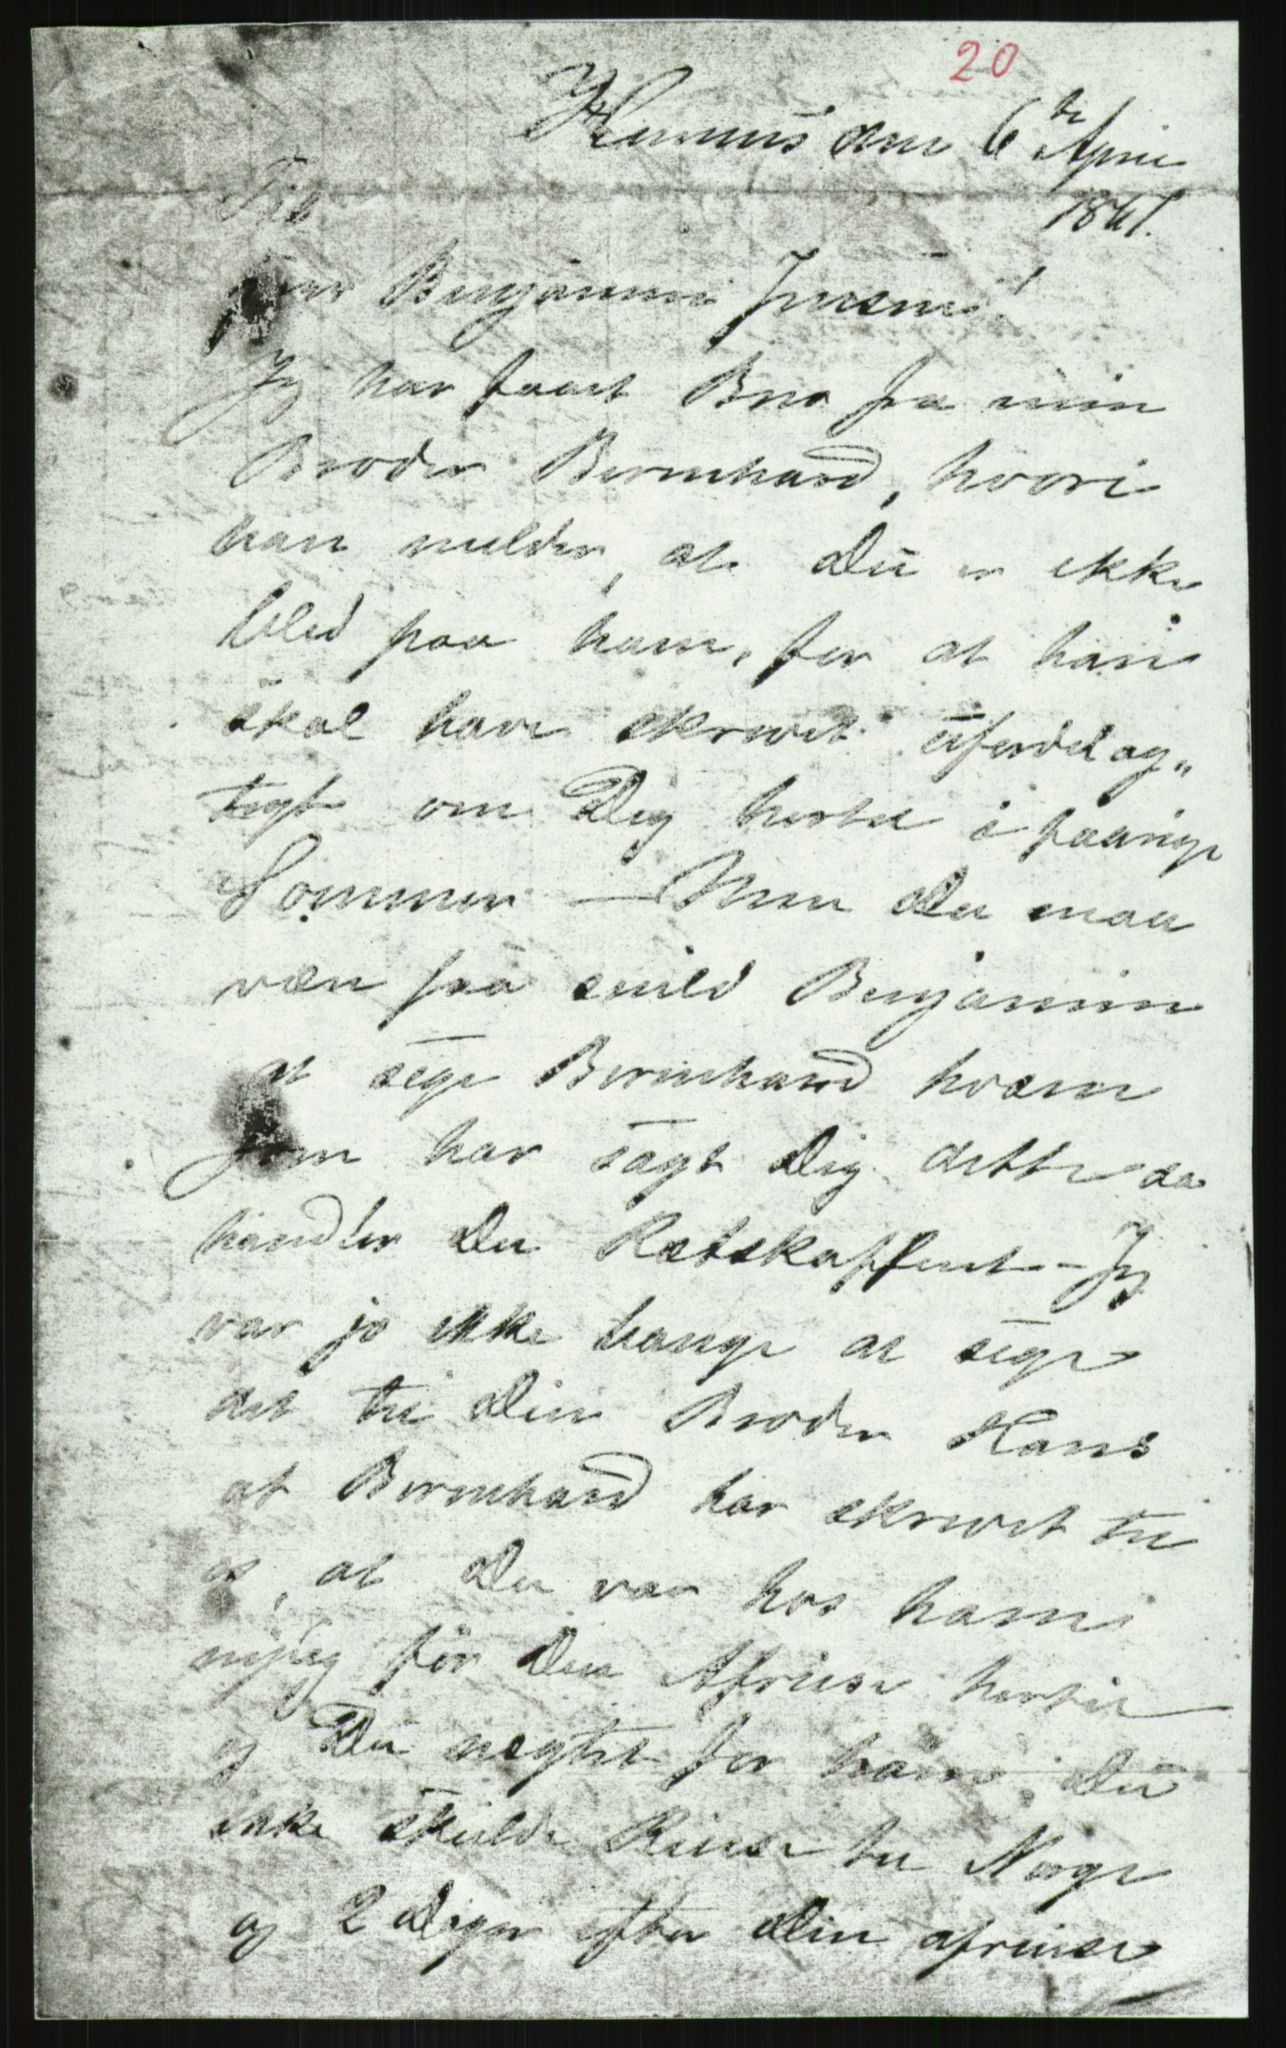 20
den 6te April
1861.
Til
Benjamin
Jeg har faaet Brev fra min
Broder Bernhard, hvori
han melder, at Du er ikke
blid paa ham, for at han
skal have skrevet ufordelag„
tigt om Dig hertil i faarige
Sommer — Men Du maa
være saa snild Benjamin
at sige Bernhard hvæm
som har sagt Dig dette da
handler Du Rætskaffent – Jeg
var jo ikke bange at sige
det til Din Broder Hans
at Bernhard har skrevet til
os, at Du var hos ham
før Din Afreise hertil
og Du nægtet for ham, Du
ikke skulde Reise til Norge
og 2 Dager efter Din afreise